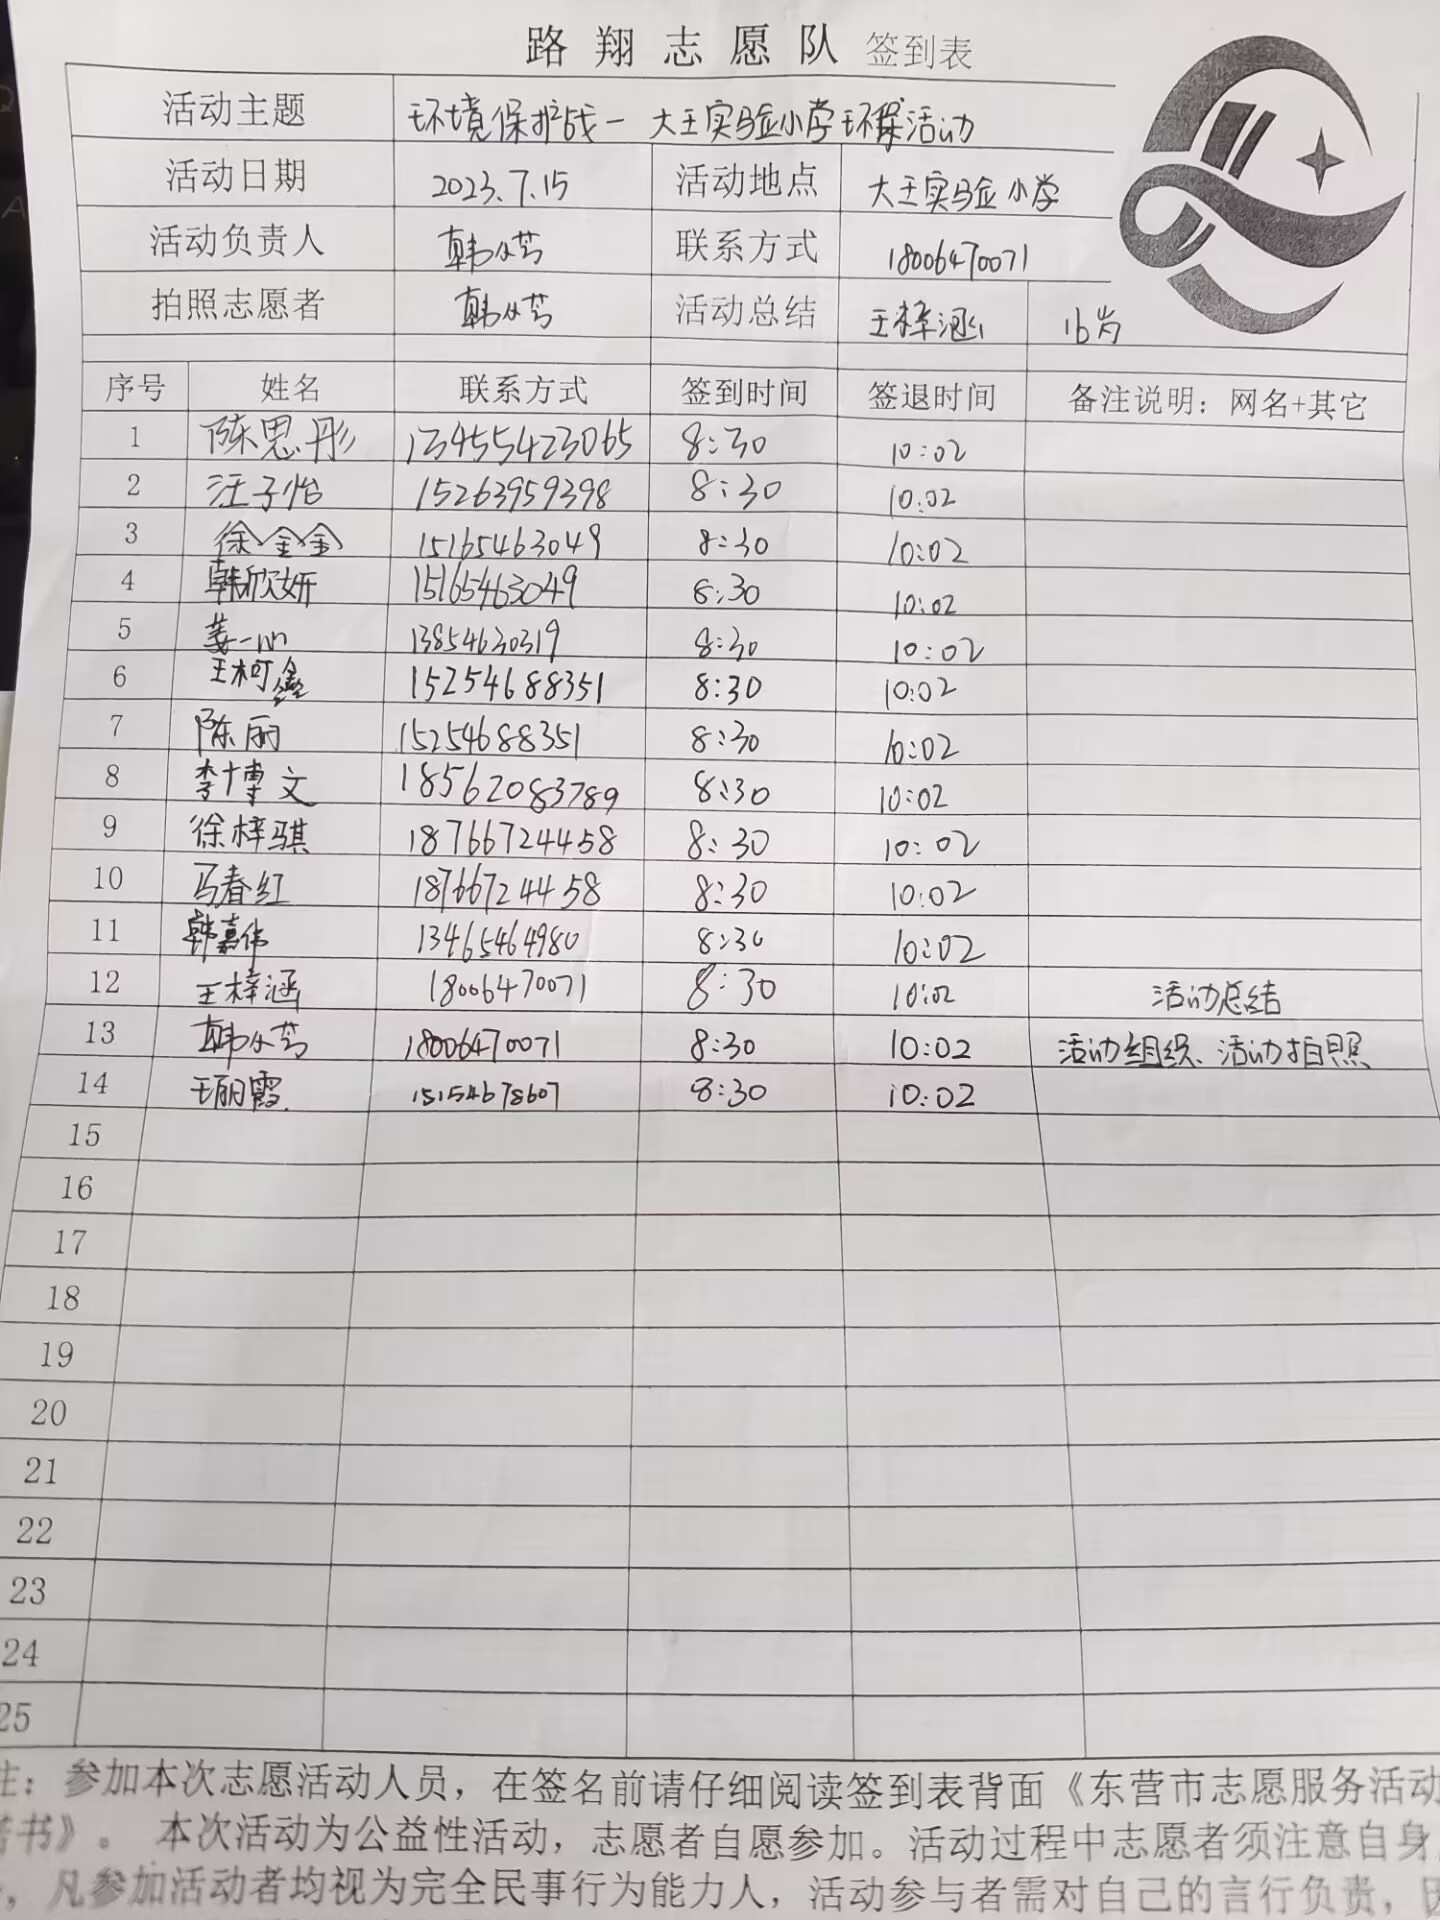 路翔志愿队 签到表
活动主题 环境保护战一 大王实验小学环保活动
活动日期 2023.7.15 活动地点 大王实验小学
活动负责人 韩从芳 联系方式 18006470071
拍照志愿者 韩从芳 活动总结 王梓涵 16岁
序号 姓名 联系方式 签到时间 签退时间 备注说明：网名+其它
1 陈思彤 13455423065 8:30 10:02
2 汪子怡 15263959398 8:30 10:02
3 徐金金 15165463049 8:30 10:02
4 韩欣妍 15165463049 8:30 10:02
5 姜一心 13854630319 8:30 10:02
6 王柯鑫 15254688351 8:30 10:02
7 陈丽 15254688351 8:30 10:02
8 李博文 18562083789 8:30 10:02
9 徐梓骐 18766724458 8:30 10:02
10 马春红 18766724458 8:30 10:02
11 韩嘉伟 13465464980 8:30 10:02
12 王梓涵 18006470071 8:30 10:02 活动总结
13 韩从芳 18006470071 8:30 10:02 活动组织、活动拍照
14 王丽霞 15154678607 8:30 10:02
15
16
17
18
19
20
21
22
23
24
25
注：参加本次志愿活动人员，在签名前请仔细阅读签到表背面《东营市志愿服务活动
书》。 本次活动为公益性活动，志愿者自愿参加。活动过程中志愿者须注意自身
，凡参加活动者均视为完全民事行为能力人，活动参与者需对自己的言行负责，因